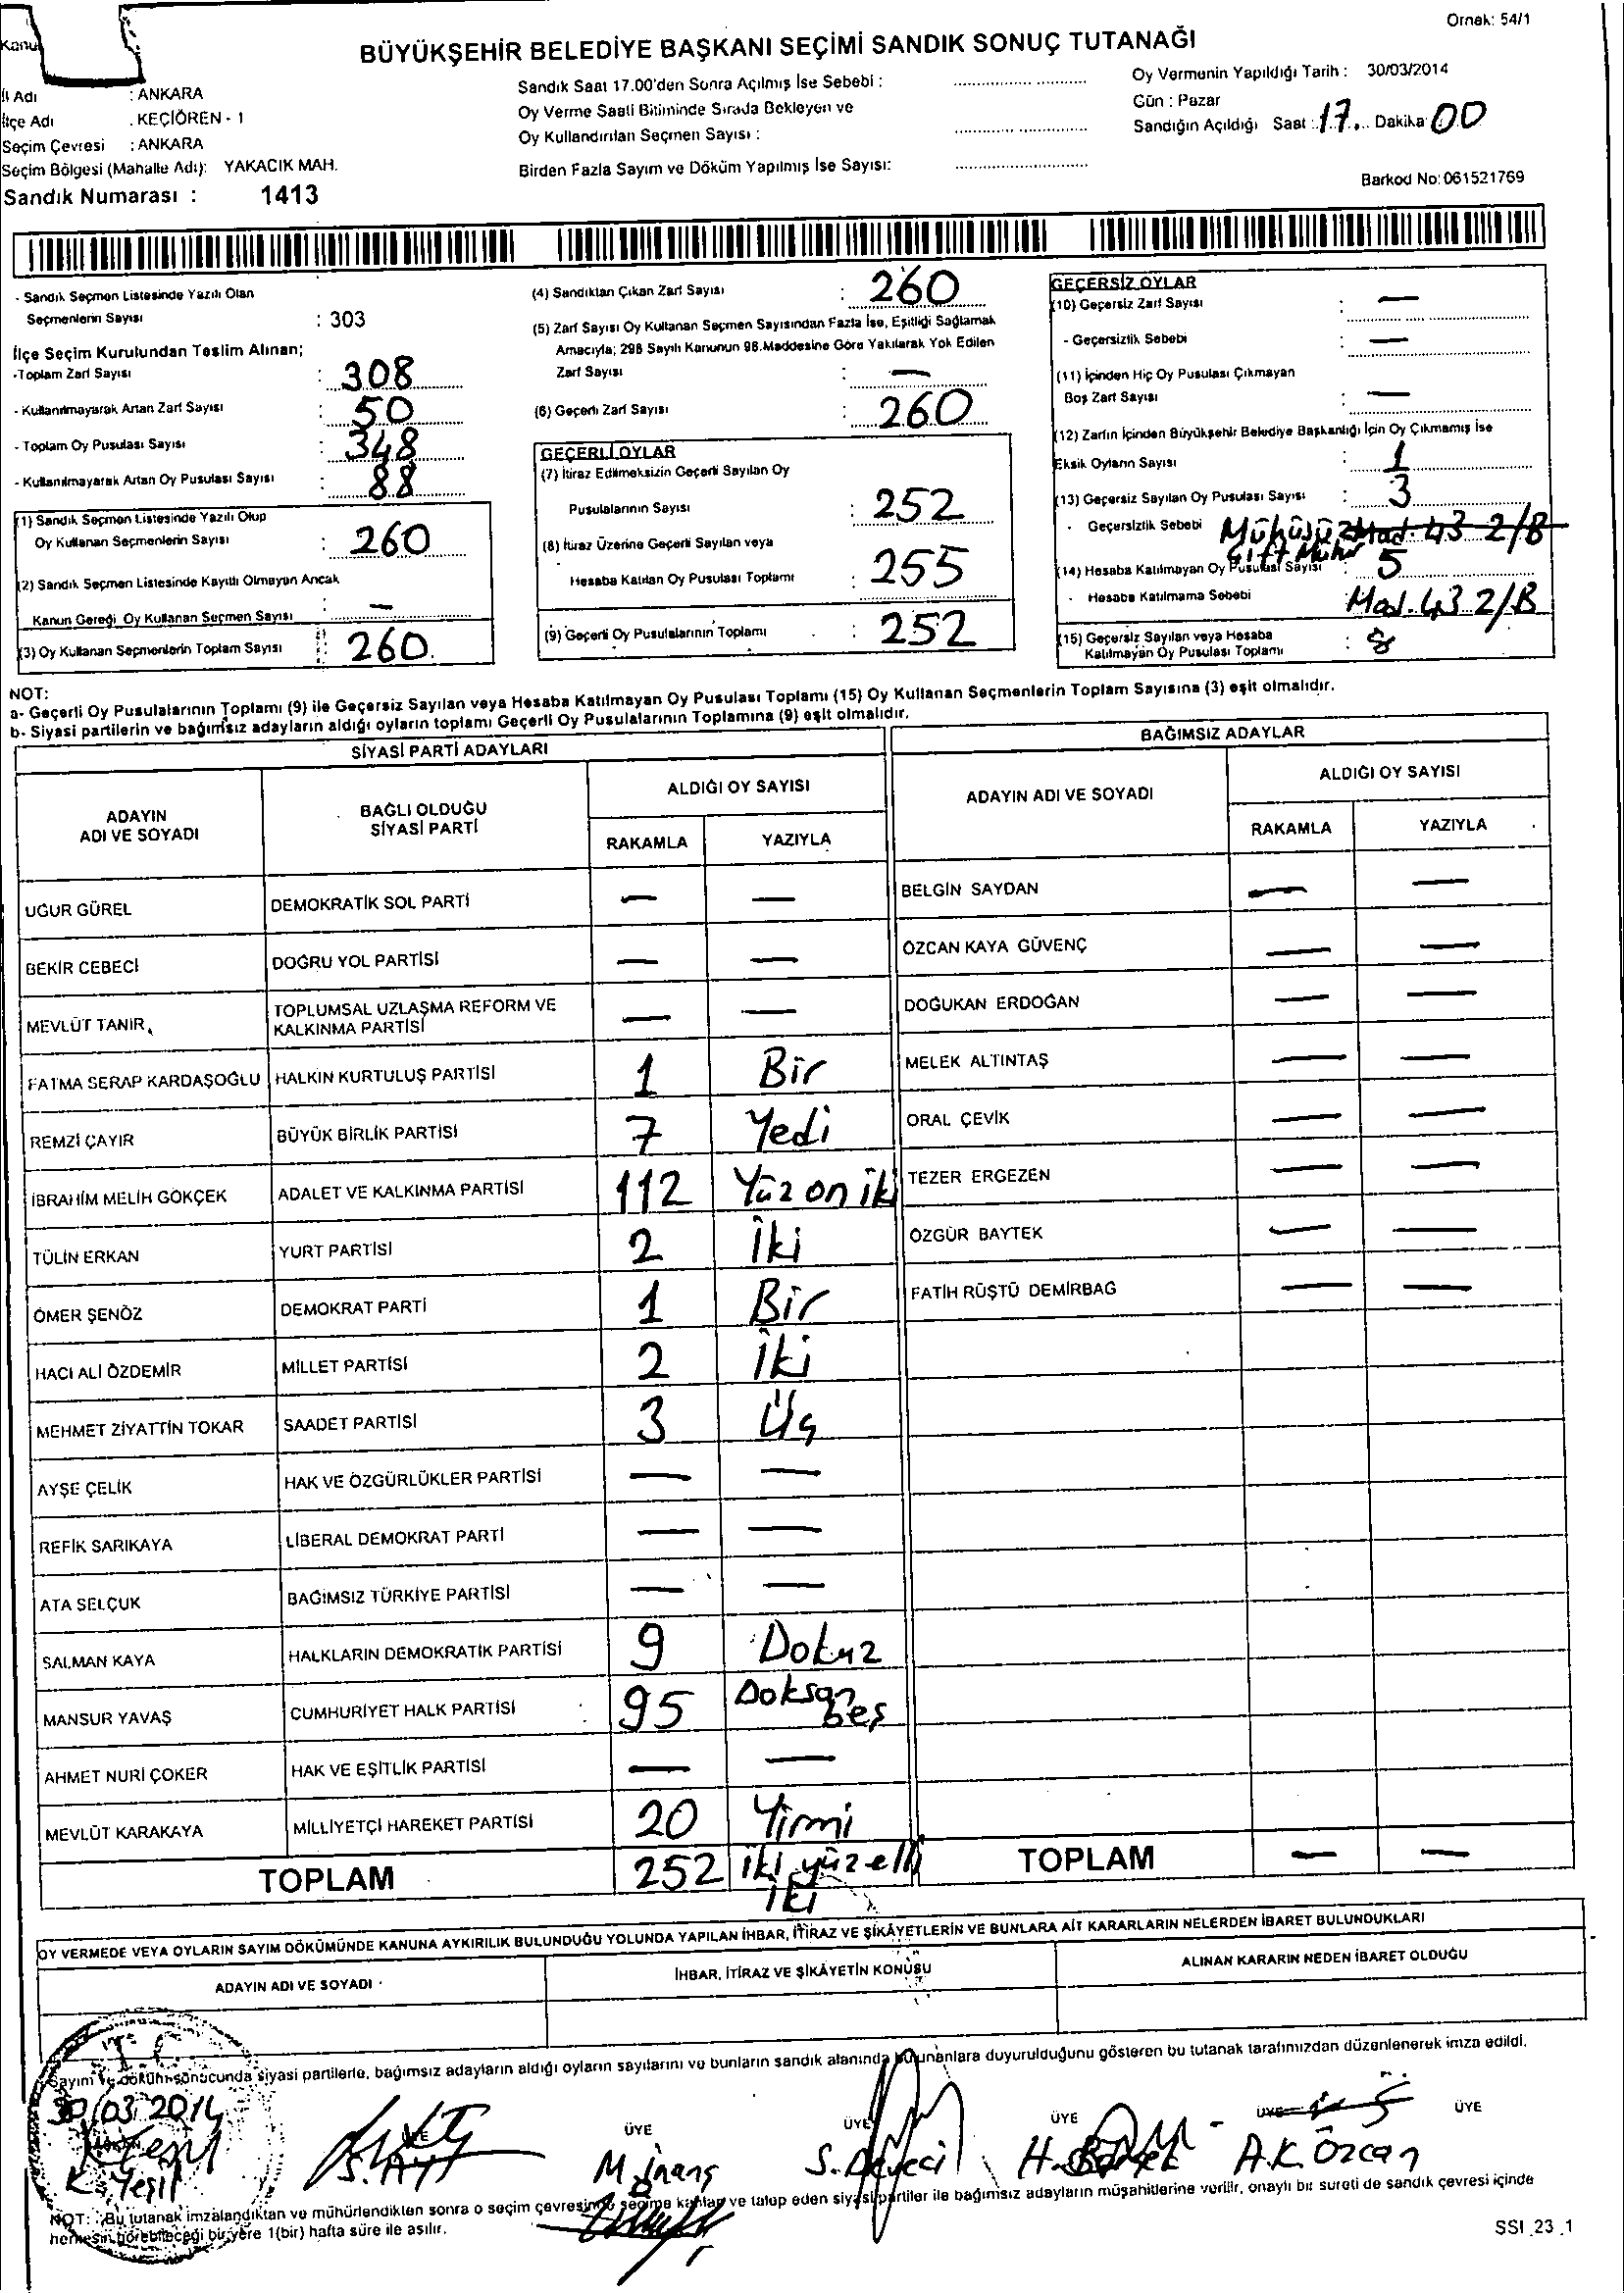 Örnek: 54/1
Kanu
BÜYÜKŞEHİR BELEDİYE BAŞKANI SEÇİMİ SANDIK SONUÇ TUTANAĞI
İl Adı : ANKARA
İlçe Adı : KEÇİÖREN - 1
Seçim Çevresi : ANKARA
Seçim Bölgesi (Mahalle Adı): YAKACIK MAH.
Sandık Numarası : 1413
Sandık Saat 17.00'den Sonra Açılmış İse Sebebi :
Oy Verme Saati Bitiminde Sırada Bekleyen ve
Oy Kullandırılan Seçmen Sayısı :
Birden Fazla Sayım ve Döküm Yapılmış İse Sayısı:
Oy Vermenin Yapıldığı Tarih : 30/03/2014
Gün : Pazar
Sandığın Açıldığı Saat : 17 Dakika 00
Barkod No: 061521769
- Sandık Seçmen Listesinde Yazılı Olan
Seçmenlerin Sayısı : 303
İlçe Seçim Kurulundan Teslim Alınan;
-Toplam Zarf Sayısı : 308
- Kullanılmayarak Artan Zarf Sayısı : 50
- Toplam Oy Pusulası Sayısı : 348
- Kullanılmayarak Artan Oy Pusulası Sayısı : 88
(1) Sandık Seçmen Listesinde Yazılı Olup
Oy Kullanan Seçmenlerin Sayısı : 260
(2) Sandık Seçmen Listesinde Kayıtlı Olmayan Ancak
Kanun Gereği Oy Kullanan Seçmen Sayısı : —
(3) Oy Kullanan Seçmenlerin Toplam Sayısı : 260
(4) Sandıktan Çıkan Zarf Sayısı : 260
(5) Zarf Sayısı Oy Kullanan Seçmen Sayısından Fazla İse, Eşitliği Sağlamak
Amacıyla; 298 Sayılı Kanunun 98.Maddesine Göre Yakılarak Yok Edilen
Zarf Sayısı : —
(6) Geçerli Zarf Sayısı : 260
GEÇERLİ OYLAR
(7) İtiraz Edilmeksizin Geçerli Sayılan Oy
Pusulalarının Sayısı : 252
(8) İtiraz Üzerine Geçerli Sayılan veya
Hesaba Katılan Oy Pusulası Toplamı : 255
(9) Geçerli Oy Pusulalarının Toplamı : 252
GEÇERSİZ OYLAR
(10) Geçersiz Zarf Sayısı : —
- Geçersizlik Sebebi : —
(11) İçinden Hiç Oy Pusulası Çıkmayan
Boş Zarf Sayısı : —
(12) Zarfın İçinden Büyükşehir Belediye Başkanlığı İçin Oy Çıkmamış İse
Eksik Oyların Sayısı : 1
(13) Geçersiz Sayılan Oy Pusulası Sayısı : 3
- Geçersizlik Sebebi Mühüsüz Mad. 43 2/B
Çift Mühür
(14) Hesaba Katılmayan Oy Pusulası Sayısı : 5
- Hesaba Katılmama Sebebi Mad. 43 2/B
(15) Geçersiz Sayılan veya Hesaba
Katılmayan Oy Pusulası Toplamı : 8
NOT:
a- Geçerli Oy Pusulalarının Toplamı (9) ile Geçersiz Sayılan veya Hesaba Katılmayan Oy Pusulası Toplamı (15) Oy Kullanan Seçmenlerin Toplam Sayısına (3) eşit olmalıdır.
b- Siyasi partilerin ve bağımsız adayların aldığı oyların toplamı Geçerli Oy Pusulalarının Toplamına (9) eşit olmalıdır.
SİYASİ PARTİ ADAYLARI
ADAYIN ADI VE SOYADI BAĞLI OLDUĞU SİYASİ PARTİ ALDIĞI OY SAYISI
RAKAMLA YAZIYLA
UĞUR GÜREL DEMOKRATİK SOL PARTİ — —
BEKİR CEBECİ DOĞRU YOL PARTİSİ — —
MEVLÜT TANIR TOPLUMSAL UZLAŞMA REFORM VE KALKINMA PARTİSİ — —
FATMA SERAP KARDAŞOĞLU HALKIN KURTULUŞ PARTİSİ 1 Bir
REMZİ ÇAYIR BÜYÜK BİRLİK PARTİSİ 7 Yedi
İBRAHİM MELİH GÖKÇEK ADALET VE KALKINMA PARTİSİ 112 Yüz on iki
TÜLİN ERKAN YURT PARTİSİ 2 İki
ÖMER ŞENÖZ DEMOKRAT PARTİ 1 Bir
HACI ALİ ÖZDEMİR MİLLET PARTİSİ 2 İki
MEHMET ZİYATTİN TOKAR SAADET PARTİSİ 3 Üç
AYŞE ÇELİK HAK VE ÖZGÜRLÜKLER PARTİSİ — —
REFİK SARIKAYA LİBERAL DEMOKRAT PARTİ — —
ATA SELÇUK BAĞIMSIZ TÜRKİYE PARTİSİ — —
SALMAN KAYA HALKLARIN DEMOKRATİK PARTİSİ 9 Dokuz
MANSUR YAVAŞ CUMHURİYET HALK PARTİSİ 95 Doksan beş
AHMET NURİ ÇOKER HAK VE EŞİTLİK PARTİSİ — —
MEVLÜT KARAKAYA MİLLİYETÇİ HAREKET PARTİSİ 20 Yirmi
TOPLAM 252 iki yüz elli iki
BAĞIMSIZ ADAYLAR
ADAYIN ADI VE SOYADI ALDIĞI OY SAYISI
RAKAMLA YAZIYLA
BELGİN SAYDAN — —
ÖZCAN KAYA GÜVENÇ — —
DOĞUKAN ERDOĞAN — —
MELEK ALTINTAŞ — —
ORAL ÇEVİK — —
TEZER ERGEZEN — —
ÖZGÜR BAYTEK — —
FATİH RÜŞTÜ DEMİRBAĞ — —
TOPLAM — —
OY VERMEDE VEYA OYLARIN SAYIM DÖKÜMÜNDE KANUNA AYKIRILIK BULUNDUĞU YOLUNDA YAPILAN İHBAR, İTİRAZ VE ŞİKÂYETLERİN VE BUNLARA AİT KARARLARIN NELERDEN İBARET BULUNDUKLARI
ADAYIN ADI VE SOYADI İHBAR, İTİRAZ VE ŞİKÂYETİN KONUSU ALINAN KARARIN NEDEN İBARET OLDUĞU
T.C.
Sayım ve döküm sonucunda siyasi partilerle, bağımsız adayların aldığı oyların sayılarını ve bunların sandık alanında bulunanlara duyurulduğunu gösteren bu tutanak tarafımızdan düzenlenerek imza edildi.
30/03/2014
ÜYE ÜYE ÜYE ÜYE ÜYE
K. Yeşil S. AY M. İnanş S. Deveci A.K. Özcan
NOT: Bu tutanak imzalandıktan ve mühürlendikten sonra o seçim çevresinde seçime katılan ve talep eden siyasi partiler ile bağımsız adayların müşahitlerine verilir, onaylı bir sureti de sandık çevresi içinde
herkesin görebileceği bir yere 1(bir) hafta süre ile asılır.
SSI_23_1